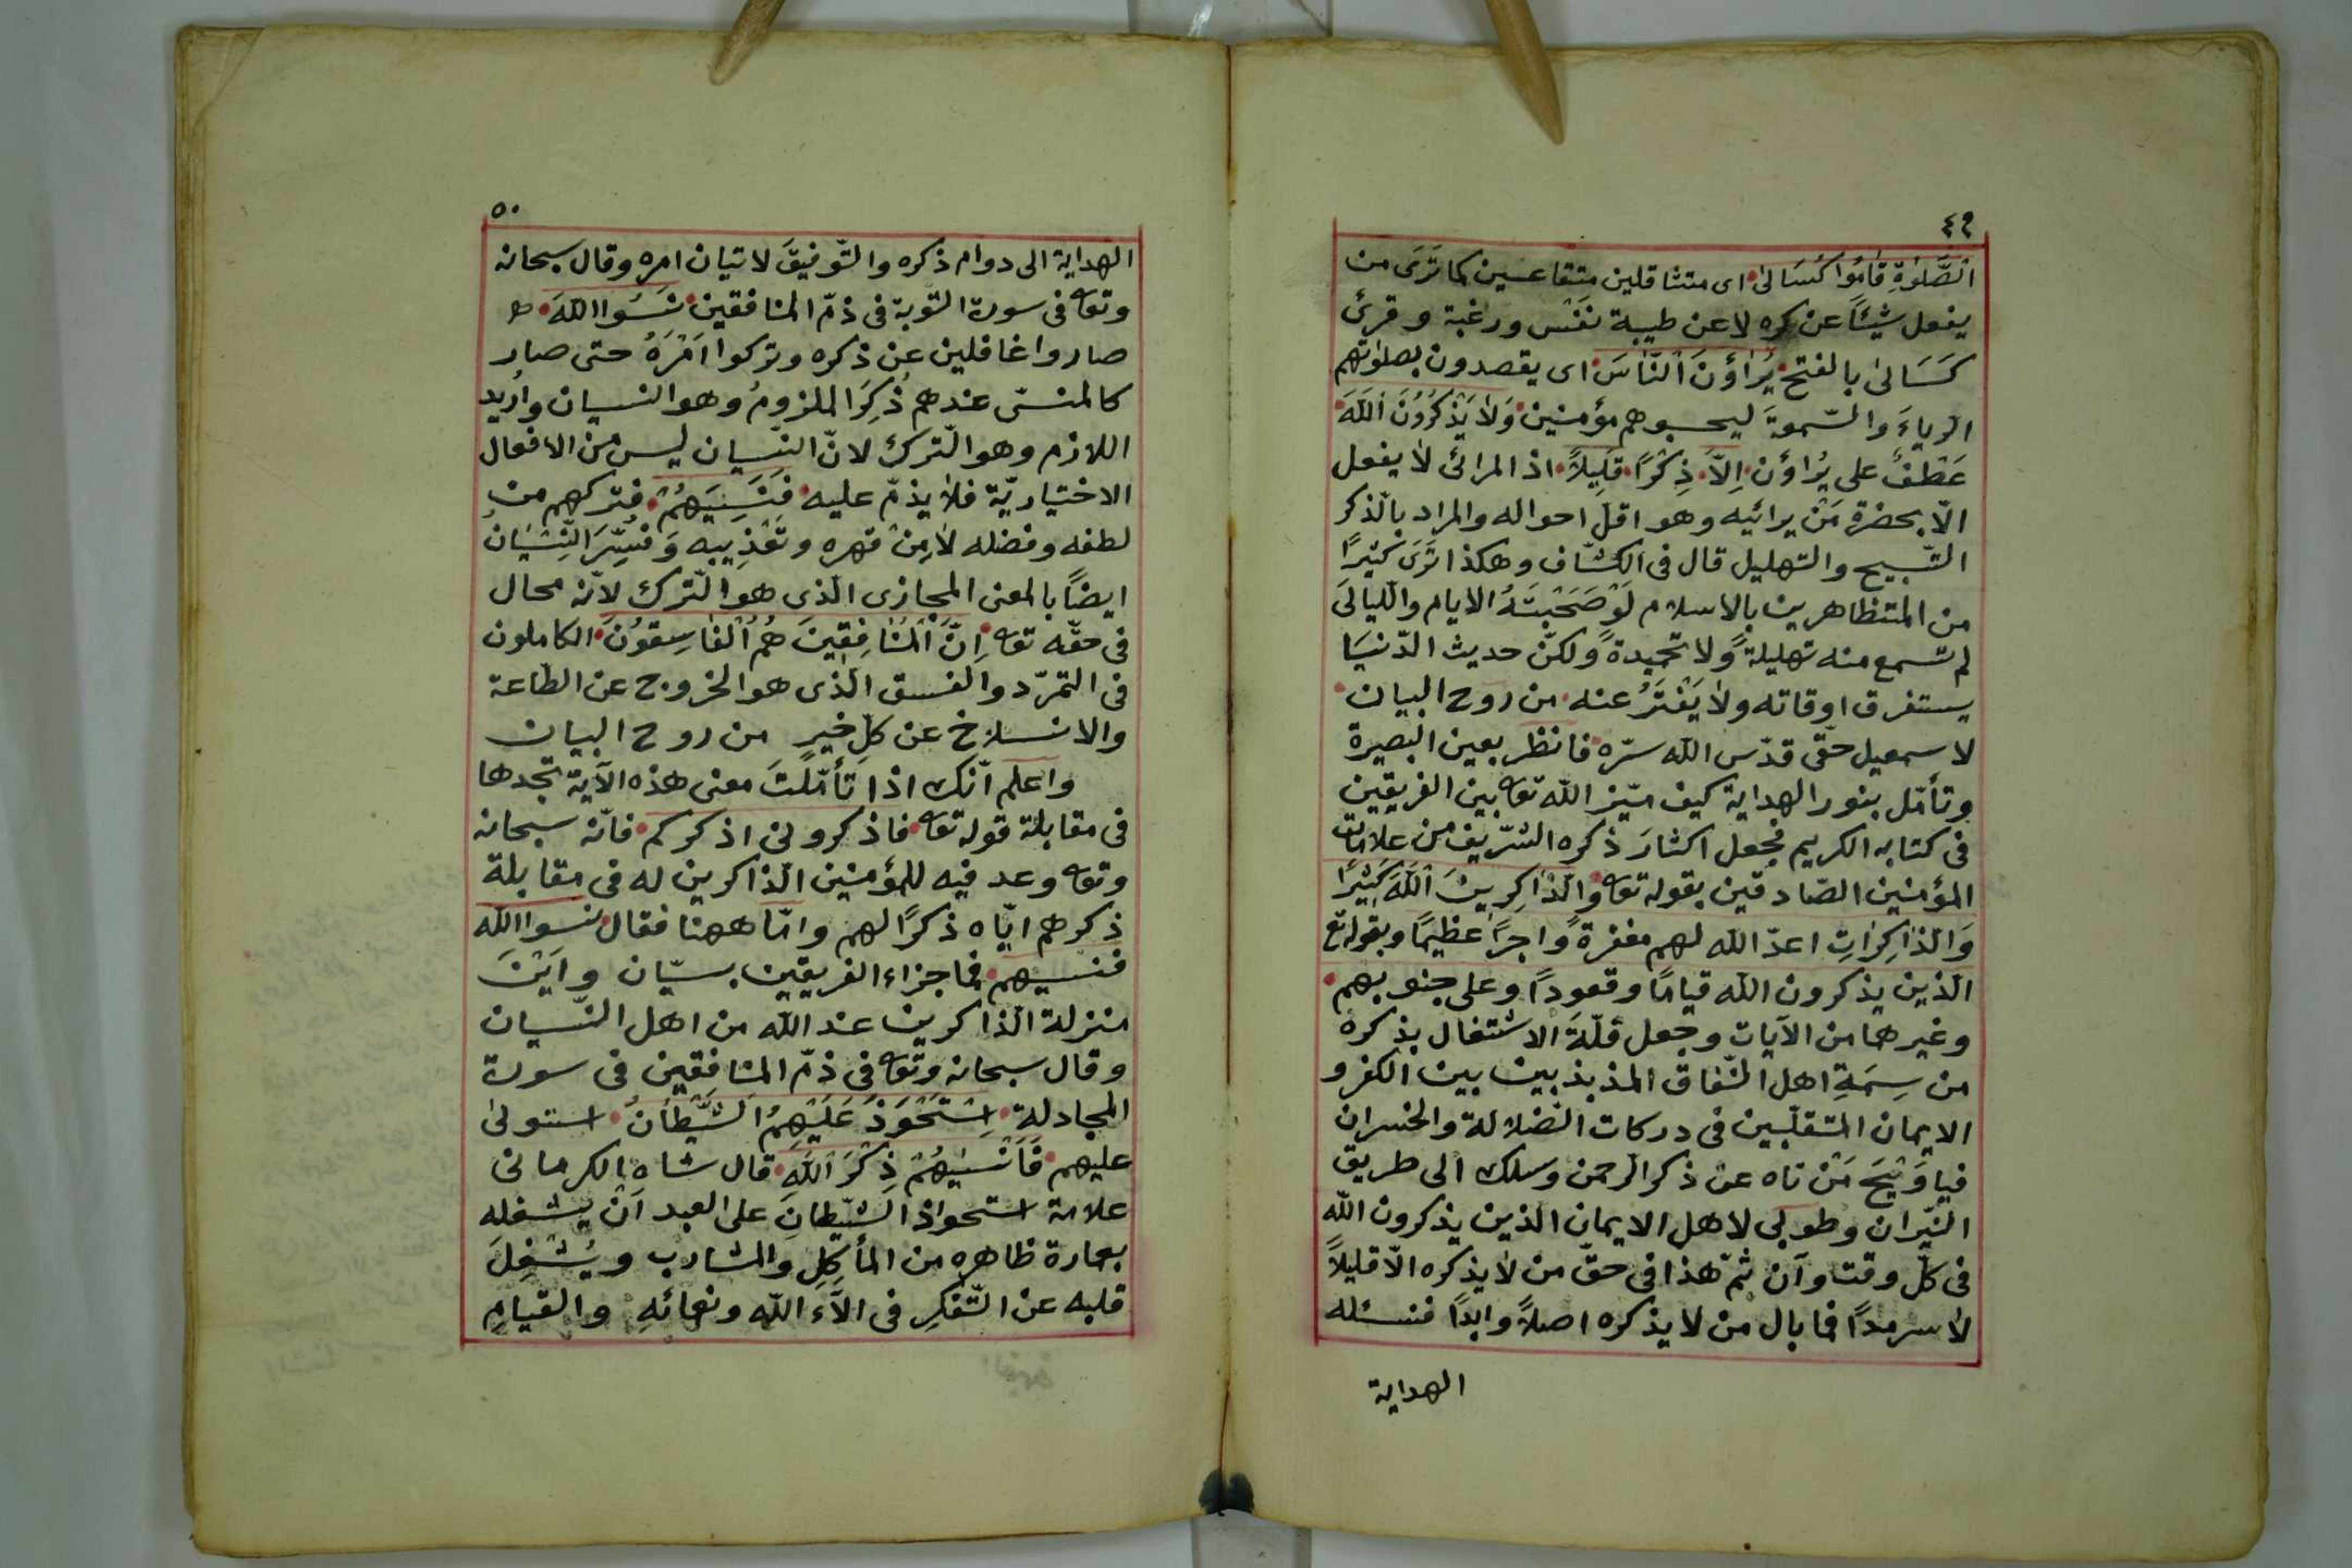 ٤٩
الصَّلٰوةِ قَامُوا كُسَالىٰ اى متثاقلين متقاعسين كما تَرَى من
يفعل شيئاً عن كره لا عن طيبة نفس ورغبة وقرئ
كَسَالىٰ بالفتح يُرَاؤُنَ النَّاسَ اى يقصدون بصلٰوتهم
الرياءَ والسّمعةَ ليحسبوهم مؤمنين وَلَا يَذْكُرُونَ اللّٰهَ
عَطْفٌ على يُراؤن اِلَّا ذِكْرًا قَلِيلاً اذ المرائى لا يفعل
الّا بحضرة مَنْ يرائيه وهو اقلّ احواله والمراد بالذّكر
التّسبيح والتهليل قال فى الكشّاف وهكذا تَرَى كثيرًا
من المتظاهرين بالاسلام لَوْ صَحَبْتَهُ الايام واللّيالىَ
لم تسمع منه تهليلةً ولا تحميدةً ولكنّ حديث الدّنيَا
يستغرق اوقاته ولا يَفْتَرُ عنه من روح البيان
لاسمعيل حقّى قدّس الله سرّه فانظر بعين البصيرة
وتأمّل بنور الهداية كيف ميّز الله تعا بين الفريقين
فى كتابه الكريم فجعل اكثارَ ذكره الشّريف من علامات
المؤمنين الصّادقين بقوله تعا وَالذَّاكِرِينَ اللّٰهَ كَثِيْرًا
وَالذَّاكِرَاتِ اعدّ الله لهم مغفرةً واجرًا عظيمًا وبقوله تع
الّذين يذكرون الله قيامًا وقعودًا وعلى جنوبهم
وغيرها من الآيات وجعل قلّةَ الاشتغال بذكره
من سِمَةِ اهل النّفاق المذبذبين بين الكفر و
الايمان المتقلّبين فى دركات الضّلالة والخسران
فيا وَيْحَ مَنْ تاه عن ذكر الرحمن وسلك الى طريق
النّيران وطوبى لاهل الايمان الذين يذكرون الله
فى كلّ وقت وآن ثمّ هذا فى حقّ من لا يذكره الّا قليلاً
لا سرمدًا فما بال من لا يذكره اصلاً وابدًا فنسئله
الهداية
٥٠
الهداية الى دوام ذكره والتّوفيقَ لاتيان امره وقال سبحانه
وتعا فى سورة التّوبة فى ذمّ المنافقين نَسُوا اللّٰهَ
صاروا غافلين عن ذكره وتركوا اَمْرَهُ حتى صار
كالمنسىّ عندهم ذُكِرَ الملزومُ وهو النسيان واُريد
اللازم وهو التّرك لانّ النّسيان ليس من الافعال
الاختياريّة فلا يذمّ عليه فَنَسِيَهُمْ فتركهم من
لطفه وفضله لا مِنْ قهره وتَعْذِيبِه وَفُسِّرَ النِّسْيَانُ
ايضًا بالمعنى المجازى الّذى هو التّرك لانّه محال
فى حقّه تعا اِنَّ الْمُنَافِقِينَ هُمُ الْفَاسِقُونَ الكاملون
فى التمرّد والفسق الّذى هو الخروج عن الطّاعة
والانسلاخ عن كلّ خيرٍ من روح البيان
واعلم انّك اذا تَأمّلتَ معنى هذه الآية تجدها
فى مقابلة قوله تعا فاذكرونى اذكركم فانّه سبحانه
وتعا وعد فيه للمؤمنين الذاكرين له فى مقابلة
ذكرهم ايّاه ذكرًا لهم وامّا ههنا فقال نسوا الله
فنسيهم فما جزاء الفريقين بسيّان واَيْنَ
منزلة الذّاكرين عند الله من اهل النّسيان
وقال سبحانه وتعا فى ذمّ المنافقين فى سورة
المجادلة اِسْتَحْوَذَ عَلَيْهِمُ الشَّيْطَانُ استولىٰ
عليهم فَاَنْسٰيهُمْ ذِكْرَ اللّٰهِ قال شاه الكرمانى
علامة استحواذ الشّيطانِ على العبد اَنْ يشغله
بعمارة ظاهره من المأكِلِ والمشارب ويُشْغِلَ
قلبه عن التّفكرِ فى الآء اللّه ونعمائهِ والقيامِ